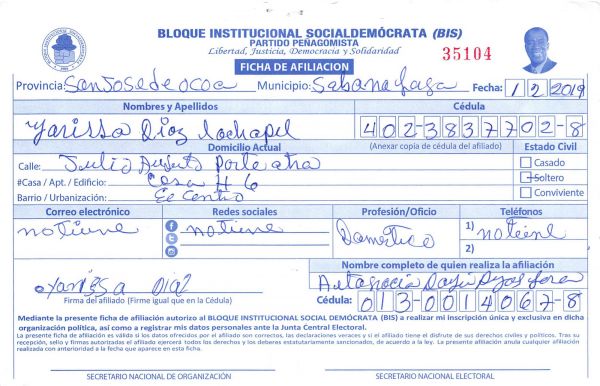 BLOQUE INSTITUCIONAL SOCIALDEMÓCRATA (BIS)
PARTIDO PEÑAGOMISTA
Libertad, Justicia, Democracia y Solidaridad
35104
FICHA DE AFILIACION
Provincia: San Jose de ocoa Municipio: Sabana Larga Fecha: 1 2 2019
Nombres y Apellidos Cédula
Yarissa Diaz Lachapel 402-3837702-8
Domicilio Actual (Anexar copia de cédula del afiliado) Estado Civil
Calle: Julio Augusto Casado
#Casa / Apt. / Edificio: Casa # 6 Soltero
Barrio / Urbanización: El Centro Conviviente
Correo electrónico Redes sociales Profesión/Oficio Teléfonos
no tiene no tiene Domestico 1) no tiene
2)
Nombre completo de quien realiza la afiliación
Yarissa Diaz
Firma del afiliado (Firme igual que en la Cédula) Cédula: 013-0014067-8
Mediante la presente ficha de afiliación autorizo al BLOQUE INSTITUCIONAL SOCIAL DEMÓCRATA (BIS) a realizar mi inscripción única y exclusiva en dicha
organización política, así como a registrar mis datos personales ante la Junta Central Electoral.
La presente ficha de afiliación es válida si los datos ofrecidos por el afiliado son correctos, las declaraciones veraces y si el afiliado tiene el disfrute de sus derechos civiles y políticos. Tras su
recepción, sello y firmas autorizadas el afiliado ejercerá todos los derechos y los deberes estatutariamente sancionados, de acuerdo a la ley. La presente afiliación anula cualquier afiliación
realizada con anterioridad a la fecha que aparece en esta ficha.
SECRETARIO NACIONAL DE ORGANIZACIÓN SECRETARIO NACIONAL ELECTORAL